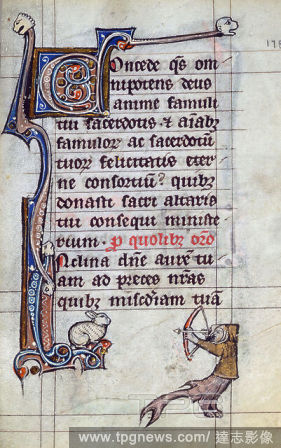 Concede qs om
nipotens deus
anime famuli
tui sacerdotis & aĩabꝫ
famuloꝝ ac sacerdotũ
tuoꝝ felicitatis eter
ne consortiũ? quibꝫ
donasti sacri altaris
tui consequi ministe
rium. ꝓ quolibꝫ orõ
nclina dñe aurẽ tu
am ad preces nr̃as
quibꝫ mis̃cdiam tuã
www.tpgnews.com/達志影像